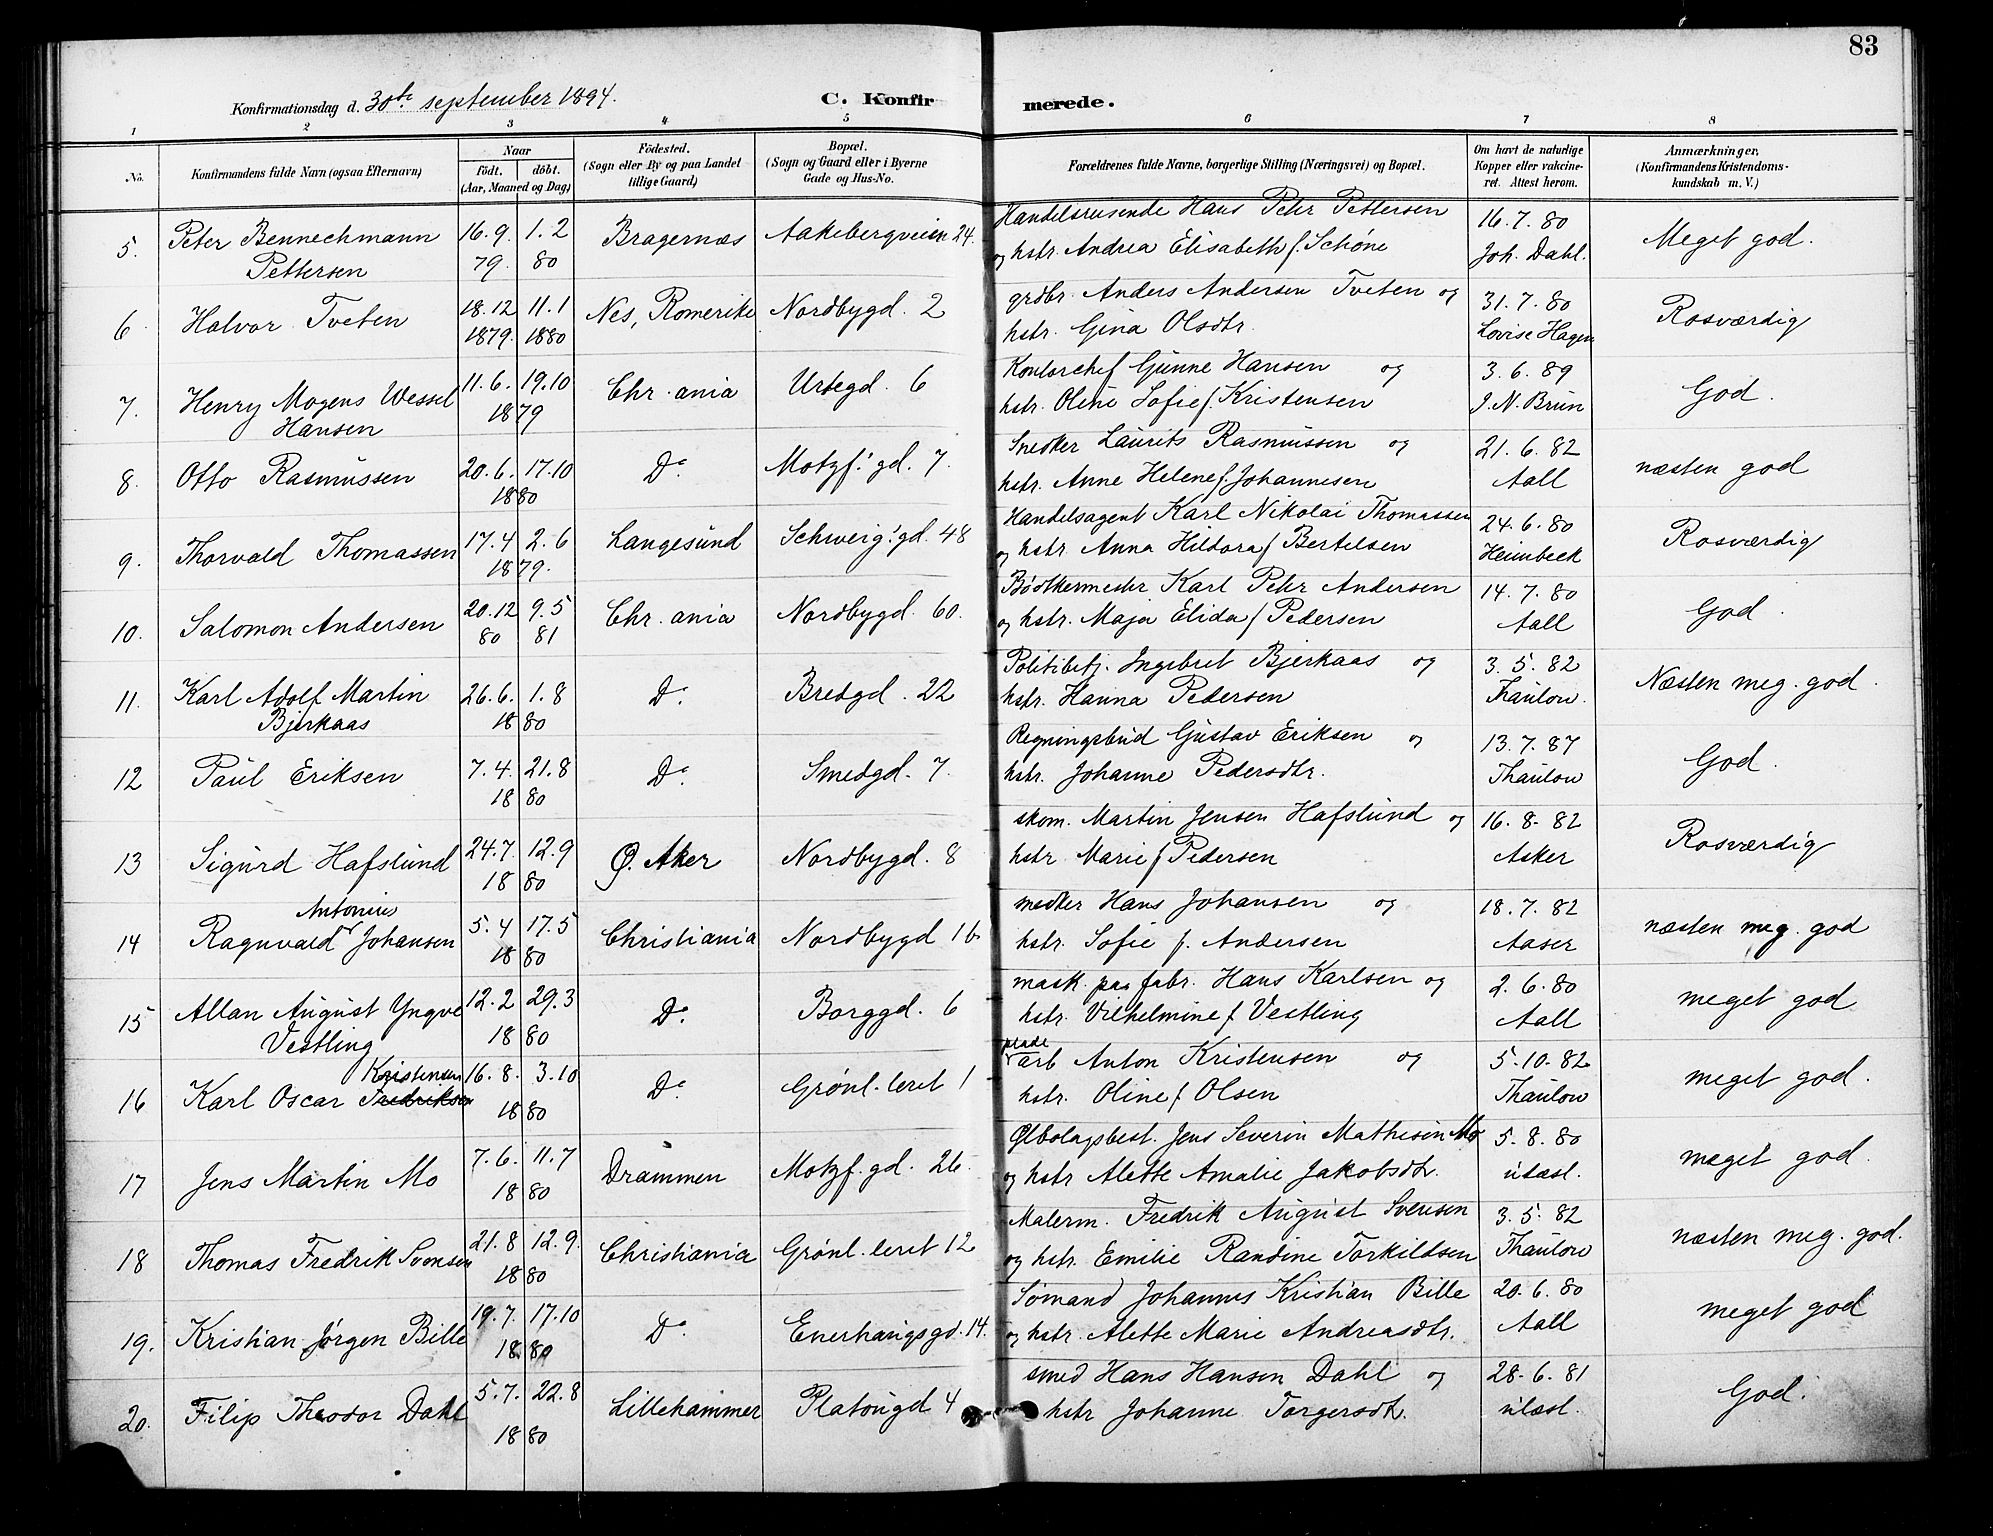 83
Konfirmationsdag d. 30te september 1894. C. Konfir merede.
1 2 3 4 5 6 7 8
No. Konfirmandens fulde Navn (ogsaa Efternavn) Naar født. døbt. (Aar, Maaned og Dag) Fødested. (Sogn eller By og paa Landet tillige Gaard) Bopæl. (Sogn og Gaard eller i Byerne Gade og Hus-No. Forældrenes fulde Navne, borgerlige Stilling (Næringsvei) og Bopæl. Om havt de naturlige Kopper eller vakcineret. Attest herom. Anmærkninger, (Konfirmandens Kristendomskundskab m. V.)
5. Peter Bennechmann 16.9. 1.2 Bragernæs Aakebergveien 24. Handelsreisende Hans Peter Pettersen 16.7.80 Meget god.
Pettersen 79. 80 og hstr. Andrea Elisabeth f. Schøne Joh. Dahl.
6. Halvor Tveten 18.12 11.1 Nes, Romerike Nordbygd. 2 grdbr. Anders Andersen Tveten og 31.7.80 Rosværdig
1879. 1880 hstr. Gina Olsdtr. Lovise Hagen
7. Henry Mogens Wessel 11.6. 19.10 Chr.ania Urtegd. 6 Kontorchef Gunne Hansen og 3.6.89 God.
Hansen 1879 hstr. Oline Sofie f. Kristensen J. N. Brun
8. Otto Rasmussen 20.6. 17.10 Do. Motzf. gd. 7. Snedker Laurits Rasmussen og 21.6.82 næsten god
1880 hstr. Anne Helene f. Johannesen Aall
9. Thorvald Thomassen 17.4 2.6 Langesund Schweig. gd. 48 Handelsagent Karl Nikolai Thomassen 24.6.80 Rosværdig
1879. og hstr. Anna Hildora f Bertelsen Heimbeck
10. Salomon Andersen 20.12 9.5 Chr.ania Nordbygd. 60. Bødkermester Karl Peter Andersen 14.7.80 God.
80 81 og hstr. Maja Elida f Pedersen Aall
11. Karl Adolf Martin 26.6. 1.8 Do. Bredgd. 22 Politibetj. Ingebret Bjerkaas og 3.5.82 Næsten meg. god.
Bjerkaas 1880 hstr. Hanna Pedersen Thaulow.
12 Paul Eriksen 7.4. 21.8 Do. Smedgd. 7. Regningsbud Gustav Eriksen og 13.7.87 God.
1880 hstr. Johanne Pedersdtr. Thaulow
13 Sigurd Hafslund 24.7. 12.9 Ø. Aker Nordbygd. 8 skom. Martin Jensen Hafslund og 16.8.82 Rosværdig
1880 hstr. Marie f Pedersen Asker
14 Ragnvald Antonius Johansen 5.4 17.5 Christiania Nordbygd 16 Hans Johansen og 18.7.82 næsten meg. god
1880 hstr. Sofie f. Andersen Aaser
15 Allan August Yngve 12.2 29.3 Do. Borggd. 6 mask. paa fabr. Hans Karlsen og 2.6.80 meget god
Vestling 1880 hstr. Vilhelmine f Vestling Aall
16 Karl Oscar Fredriksen Kristensen 16.8. 3.10 Do. Grønl. leret 1 plade arb Anton Kristensen og 5.10.82 meget god.
1880 hstr. Oline f. Olsen Thaulow
17 Jens Martin Mo 7.6. 11.7 Drammen Motzf. gd. 26. Ølbolagsbest. Jens Severin Mathisen Mo 5.8.80 meget god.
1880 og hstr Alette Amalie Jakobsdt. ulæsl.
18 Thomas Fredrik Svensen 21.8 12.9. Christiania Grønl. leret 12 Malerm. Fredrik August Svensen 3.5.82 næsten meg. god.
1880 og hstr. Emilie Randine Torkildsen Thaulow
19. Kristian Jørgen Bille 19.7. 17.10 Do. Enerhaugsgd. 14. Sømand Johannes Kristian Bille 20.6.80 meget god
1880 og hstr. Alette Marie Andreasdtr. Aall
20. Filip Theodor Dahl 5.7. 22.8 Lillehammer Platougd 4 smed Hans Hansen Dahl og 28.6.81 God.
1880 hstr Johanne Torgersdt. ulæsl.